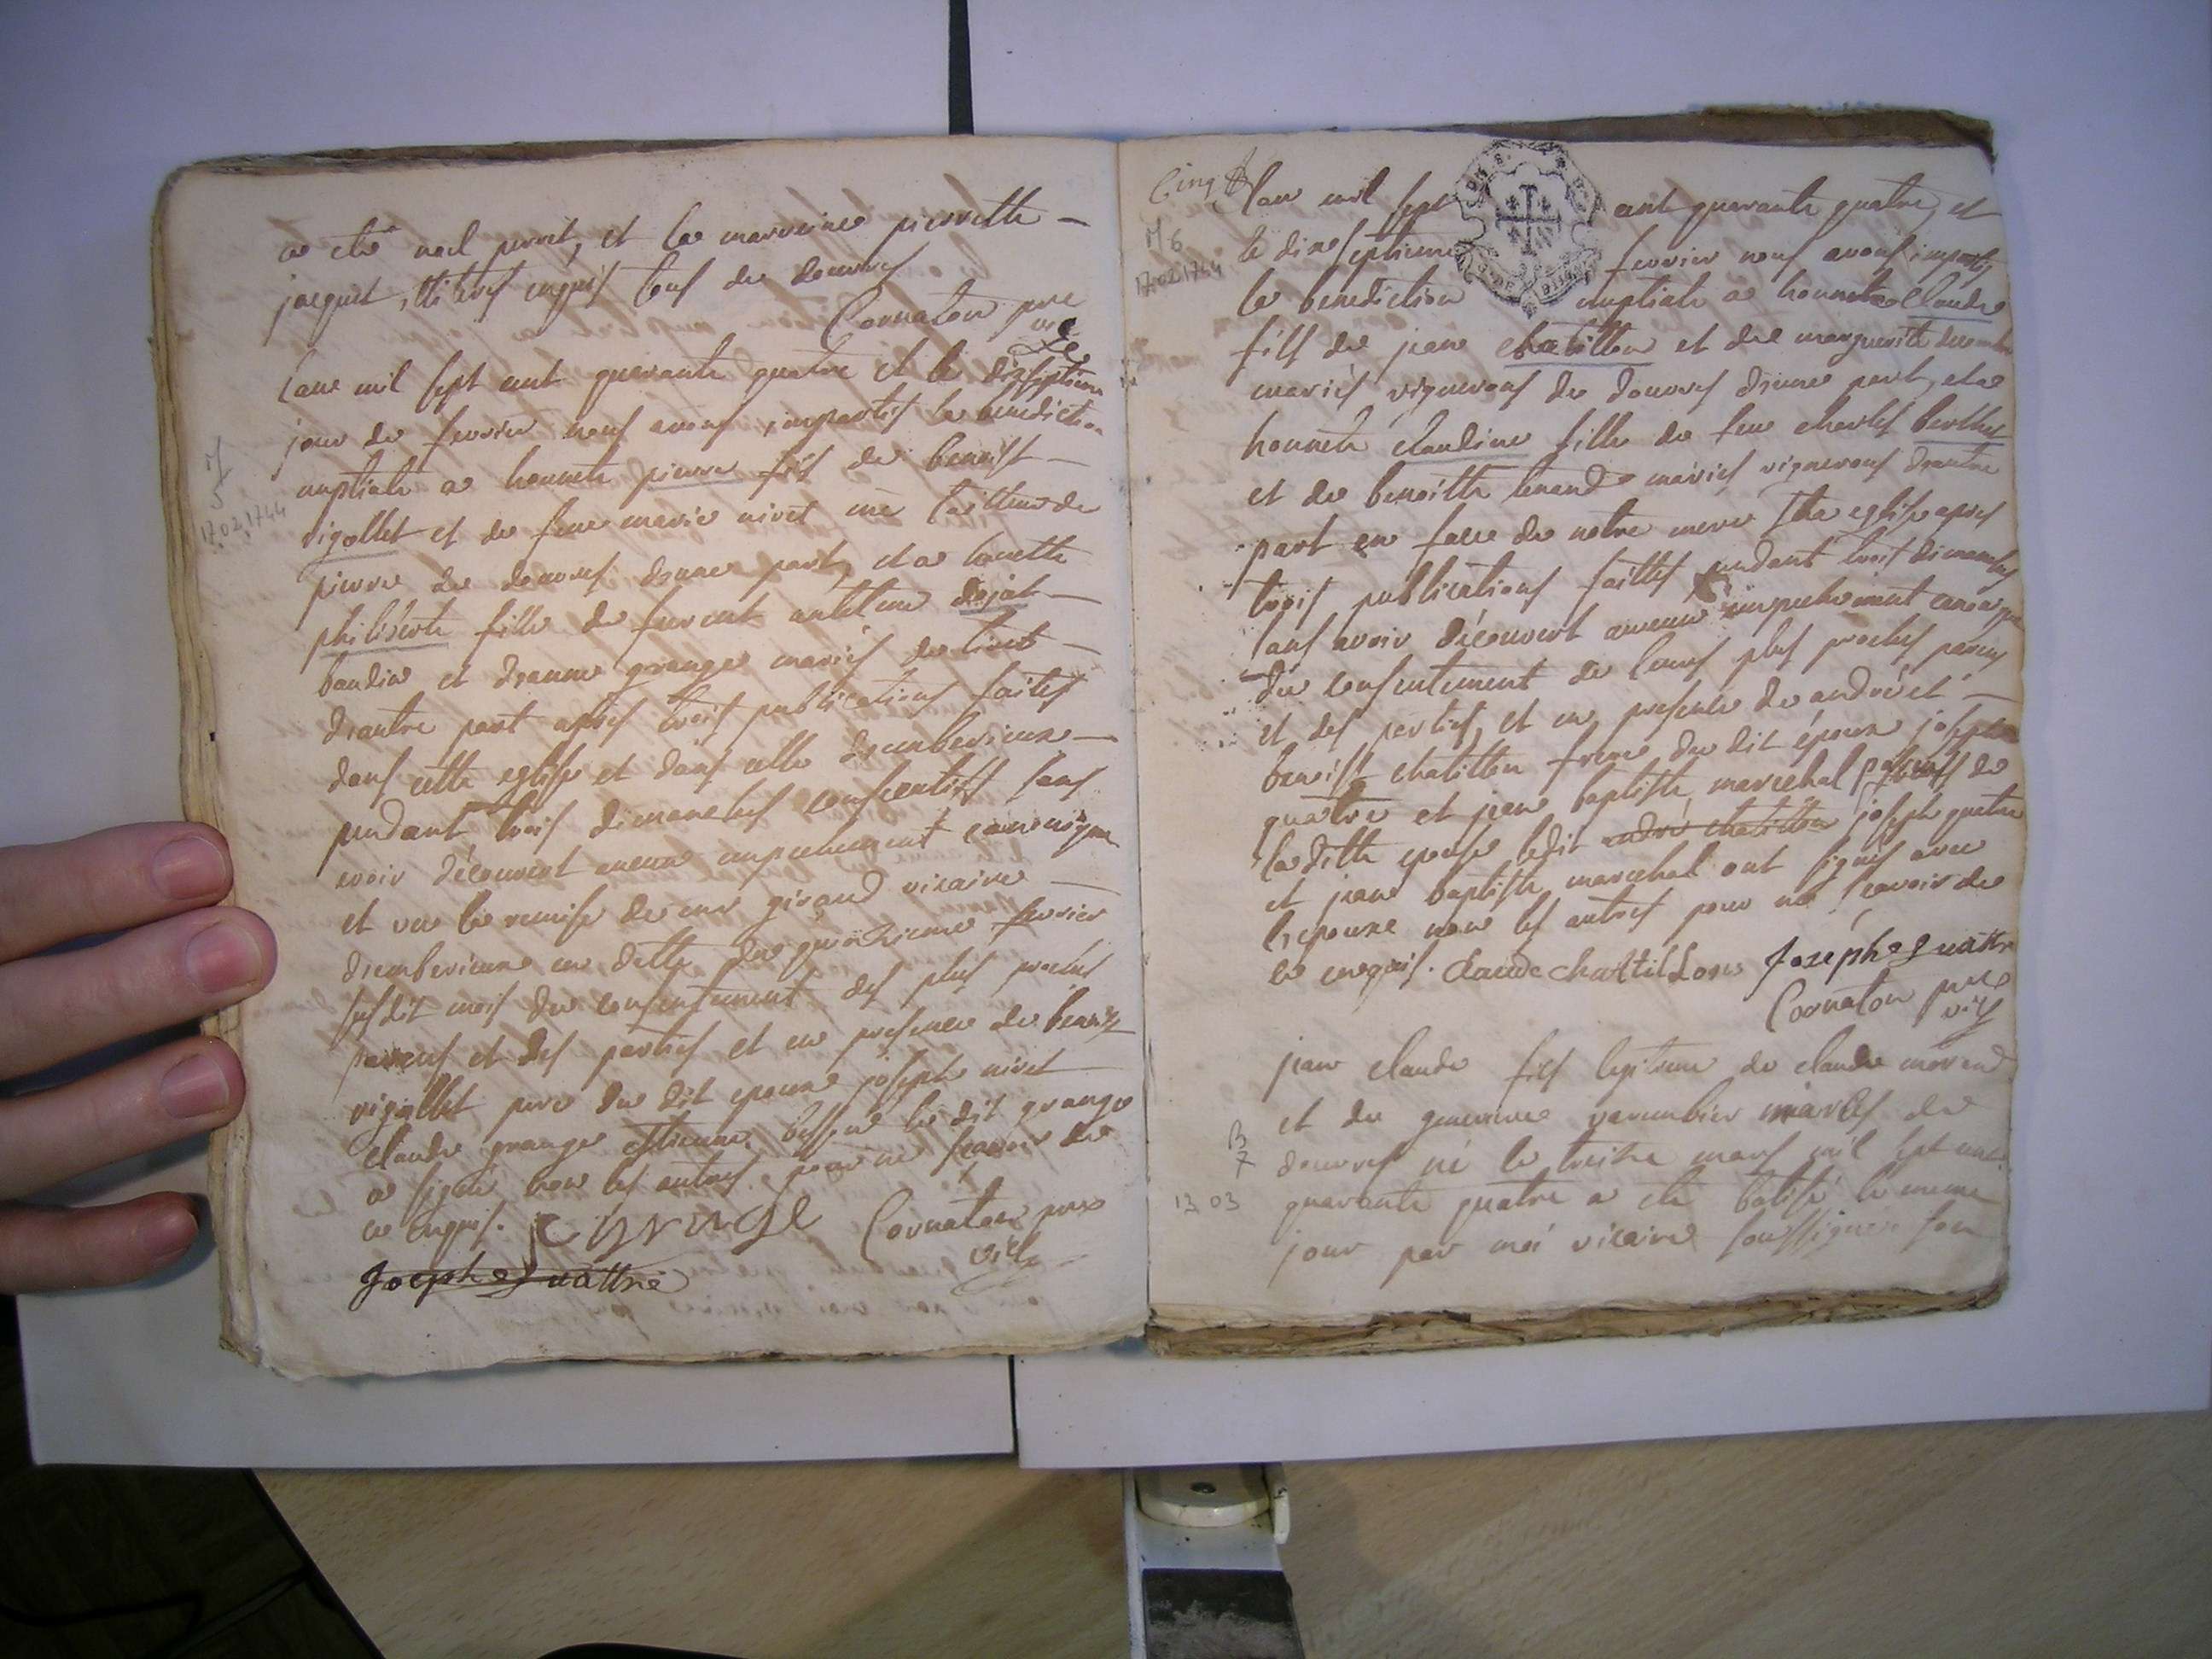 a eté noel perret, et la marreine pierrette
jaquet, illiterés enquis tous de douvres
Cornaton pre
vic
lan mil sept cent quarante quatre et le dixseptieme
jour de fevrier nous avons impartis la benediction
nuptiale a honnete pierre fils de benoist
rigollet et de feue marie nivet
pierre de douvres d'une part, et a honnette
philiberte fille de
baudin et d'anne grange mariés de
d'autre part après trois publications faites
dans cette eglise et dans celle d'emberieux
pendant trois dimanches consecutifs sans
avoir découvert aucun empechement canonique
et vu la remise de mr giraud vicaire
d'emberieux en datte du quinzieme fevrier
susdit mois du consentement des plus proches
parens et des parties et en presence de benoist
rigollet pere du dit epoux joseph nivet
claude grange estienne le dit grange
a signé non les autres pour ne scavoir de
ce enquis. C grange Cornaton pre
vic
Joseph quattre
M
5
17.02.1744
Cinq
M 6
17.02.1744
lan mil sept cent quarante quatre, et
le dixseptieme fevrier nous avons impartis
la benediction nuptiale a honnete Claude
fils de jean chatillon et de marguerite
mariés vignerons de douvres d'une part, et a
honnete claudine fille de feu charles berthet
et de benoitte mariés vignerons d'autre
part en face de notre mere Ste eglise apres
trois publications faittes pendant trois dimanches
sans avoir découvert aucun empechement canonique
du consentement de leurs plus proches parens
et des parties, et en presence de andré et
benoist chatillon frere du dit époux joseph
quatre et jean baptiste marechal parens de
la ditte epouse ledit andré chatillon joseph quatre
et jean baptiste marechal ont signés avec
l'epoux non les autres pour ne scavoir de
ce enquis. Claude Chattillon Joseph quattre
Cornaton pre
vic
jean claude fils legitime de claude morand
et de genevieve varembier mariés de
douvres né le treize mars mil sept cent
quarante quatre a eté batisé le meme
jour par moi vicaire soussigné son
B
7
13 03